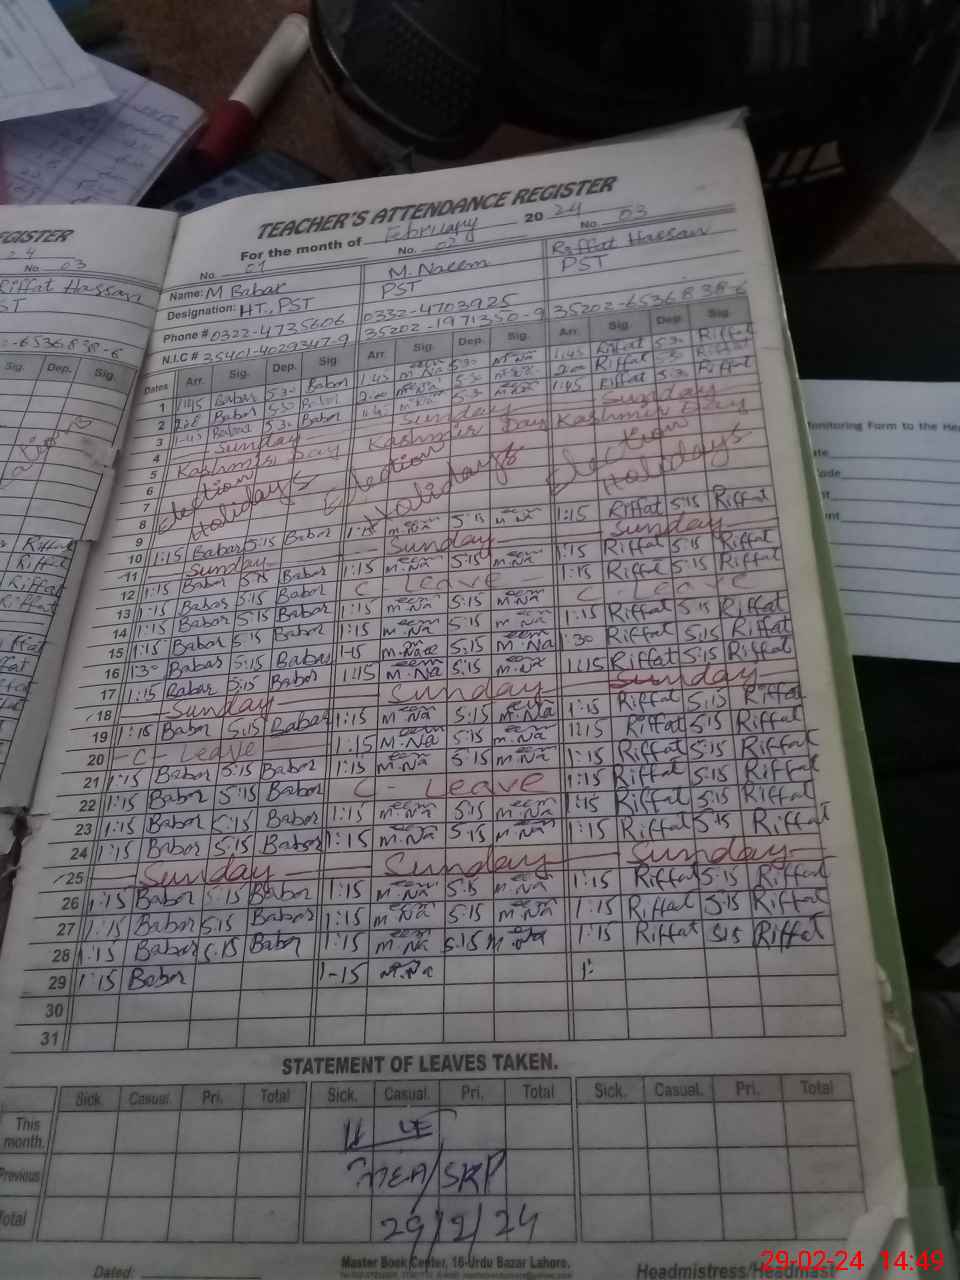 TEACHER'S ATTENDANCE REGISTER
For the month of February 2024
No. 01 No. 02 No. 03
Name: M Babar M. Naeem Riffat Hassan
Designation: HT., PST PST PST
Phone # 0322-4735606 0332-4703925
N.I.C # 35401-4029347-9 35202-1971350-9 35202-6536838-6
Dates Arr. Sig. Dep. Sig. Arr. Sig. Dep. Sig. Arr. Sig. Dep. Sig.
1 1:45 Babar 5:30 Babar 1:45 5:30 1:45 Riffat 5:30 Riffat
2 2:00 Babar 5:30 Babar 2:00 5:30 2:00 Riffat 5:30 Riffat
3 1:45 Babar 5:30 Babar 1:45 5:30 1:45 Riffat 5:30 Riffat
4 Sunday Sunday Sunday
5 Kashmir Day Kashmir Day Kashmir Day
6
7 Election Election Election
8 Holidays Holidays Holidays
9
10 1:15 Babar 5:15 Babar 1:15 5:15 1:15 Riffat 5:15 Riffat
11 Sunday Sunday Sunday
12 1:15 Babar 5:15 Babar 1:15 5:15 1:15 Riffat 5:15 Riffat
13 1:15 Babar 5:15 Babar C Leave 1:15 Riffat 5:15 Riffat
14 1:15 Babar 5:15 Babar 1:15 5:15 C - Leave
15 1:15 Babar 5:15 Babar 1:15 5:15 1:15 Riffat 5:15 Riffat
16 1:30 Babar 5:15 Babar 1:15 5:15 1:30 Riffat 5:15 Riffat
17 1:15 Babar 5:15 Babar 1:15 5:15 1:15 Riffat 5:15 Riffat
18 Sunday Sunday Sunday
19 1:15 Babar 5:15 Babar 1:15 5:15 1:15 Riffat 5:15 Riffat
20 C- Leave 1:15 5:15 1:15 Riffat 5:15 Riffat
21 1:15 Babar 5:15 Babar 1:15 5:15 1:15 Riffat 5:15 Riffat
22 1:15 Babar 5:15 Babar C - Leave 1:15 Riffat 5:15 Riffat
23 1:15 Babar 5:15 Babar 1:15 5:15 1:15 Riffat 5:15 Riffat
24 1:15 Babar 5:15 Babar 1:15 5:15 1:15 Riffat 5:15 Riffat
25 Sunday Sunday Sunday
26 1:15 Babar 5:15 Babar 1:15 5:15 1:15 Riffat 5:15 Riffat
27 1:15 Babar 5:15 Babar 1:15 5:15 1:15 Riffat 5:15 Riffat
28 1:15 Babar 5:15 Babar 1:15 5:15 1:15 Riffat 5:15 Riffat
29 1:15 Babar 1-15 1:
30
31
STATEMENT OF LEAVES TAKEN.
Sick. Casual. Pri. Total Sick. Casual. Pri. Total Sick. Casual. Pri. Total
This month.
Previous
Total
MEA/SKP
29/2/24
Dated:
Master Book Center, 16-Urdu Bazar Lahore.
Headmistress/Headmast
29-02-24 14:49